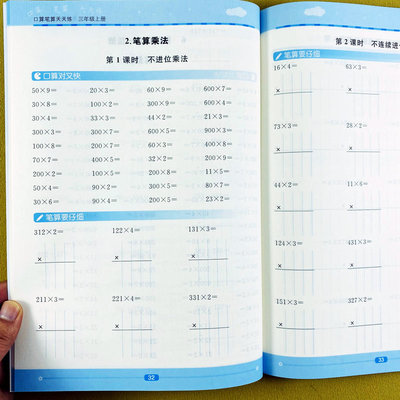 口算笔算天天练 三年级上册
2.笔算乘法
第1课时 不进位乘法
口算对又快
50×9= 20×3= 60×9= 600×7=
30×8= 100×2= 300×9= 900×4=
30×3= 44×2= 200×2=
300×7= 600×3= 900×5= 900×9=
100×8= 300×6= 300×3=
70×7= 400×5= 32×2= 200×9=
200×5= 200×8= 11×8= 80×7=
50×4= 90×2= 300×5= 80×5=
30×6= 90×4= 200×5= 23×2=
笔算要仔细
312×2= 122×4= 131×3=
× × ×
211×3= 221×4= 331×2=
× × ×
32
第2课时
笔算要仔细
16×4= 63×3=
× ×
73×3= 28×2=
× ×
44×2= 11×6=
× ×
124×3= 431×3=
× ×
151×3= 327×2=
× ×
33